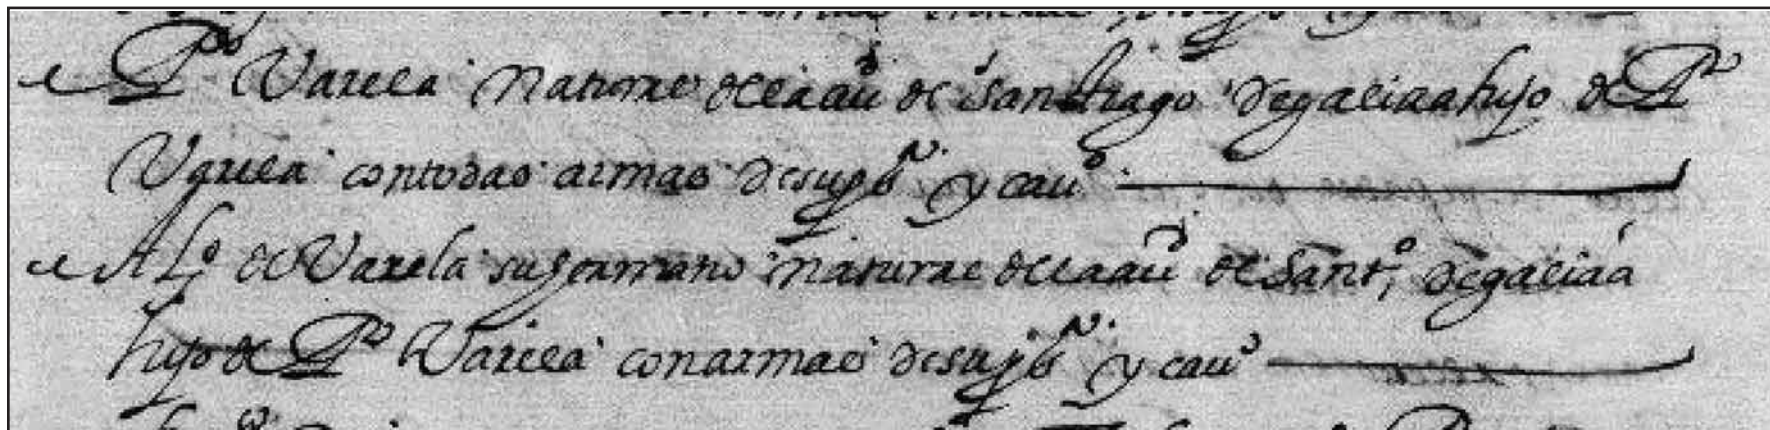 P.º Varela natural de la ciud de Santtiago de galicia hijo de P.º
Varela con todas armas de su pers.ª y cauº
Al.º de Varela su hermano natural de la ciud de Sant.º de galicia
hijo de P.º Varela con armas de su pers.ª y cauº